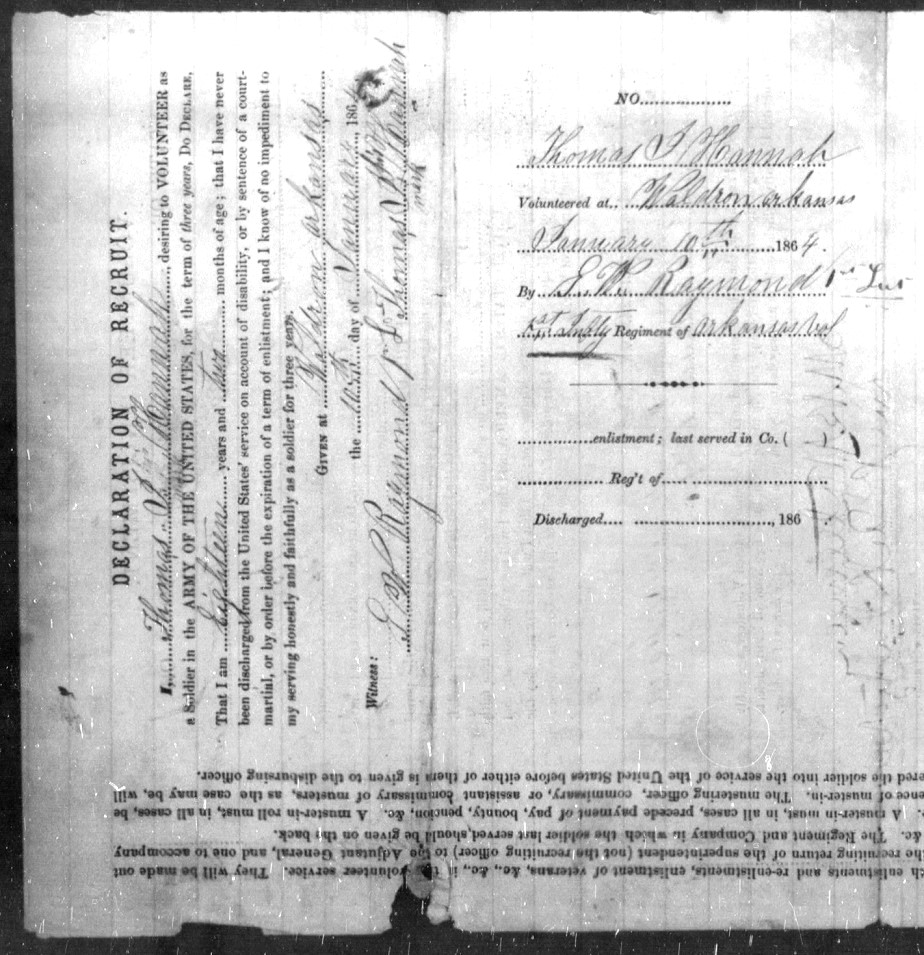 DECLARATION OF RECRUIT.
I, Thomas Hannah, desiring to VOLUNTEER as
a Soldier in the ARMY OF THE UNITED STATES, for the term of three years, DO DECLARE,
That I am Eighteen years and two months of age; that I have never
been discharged from the United States' service on account of disability, or by sentence of a court-
martial, or by order before the expiration of a term of enlistment; and I know of no impediment to
my serving honestly and faithfully as a soldier for three years.
GIVEN at Waldron arkansas
the 10th day of January, 186
Witness:
Raymond 1st Lt Thomas Hannah
mark
NO.
Thomas J Hannah
Volunteered at Waldron arkansas
January 10th 1864.
By S. W. Raymond 1st Lut
1st Infty Regiment of arkansas vol
enlistment; last served in Co. ( )
Reg't of
Discharged , 186 .
ch enlistments and re-enlistments, enlistment of veterans, &c., &c., in the volunteer service. They will be made out
the recruiting return of the superintendent (not the recruiting officer) to the Adjutant General, and one to accompany
&c. The Regiment and Company in which the soldier last served, should be given on the back.
A muster-in must, in all cases, precede payment of pay, bounty, pension, &c. A muster-in roll must, in all cases, be
ence of muster-in. The mustering officer, commissary, or assistant commissary of musters, as the case may be, will
ered the soldier into the service of the United States before either of them is given to the disbursing officer.